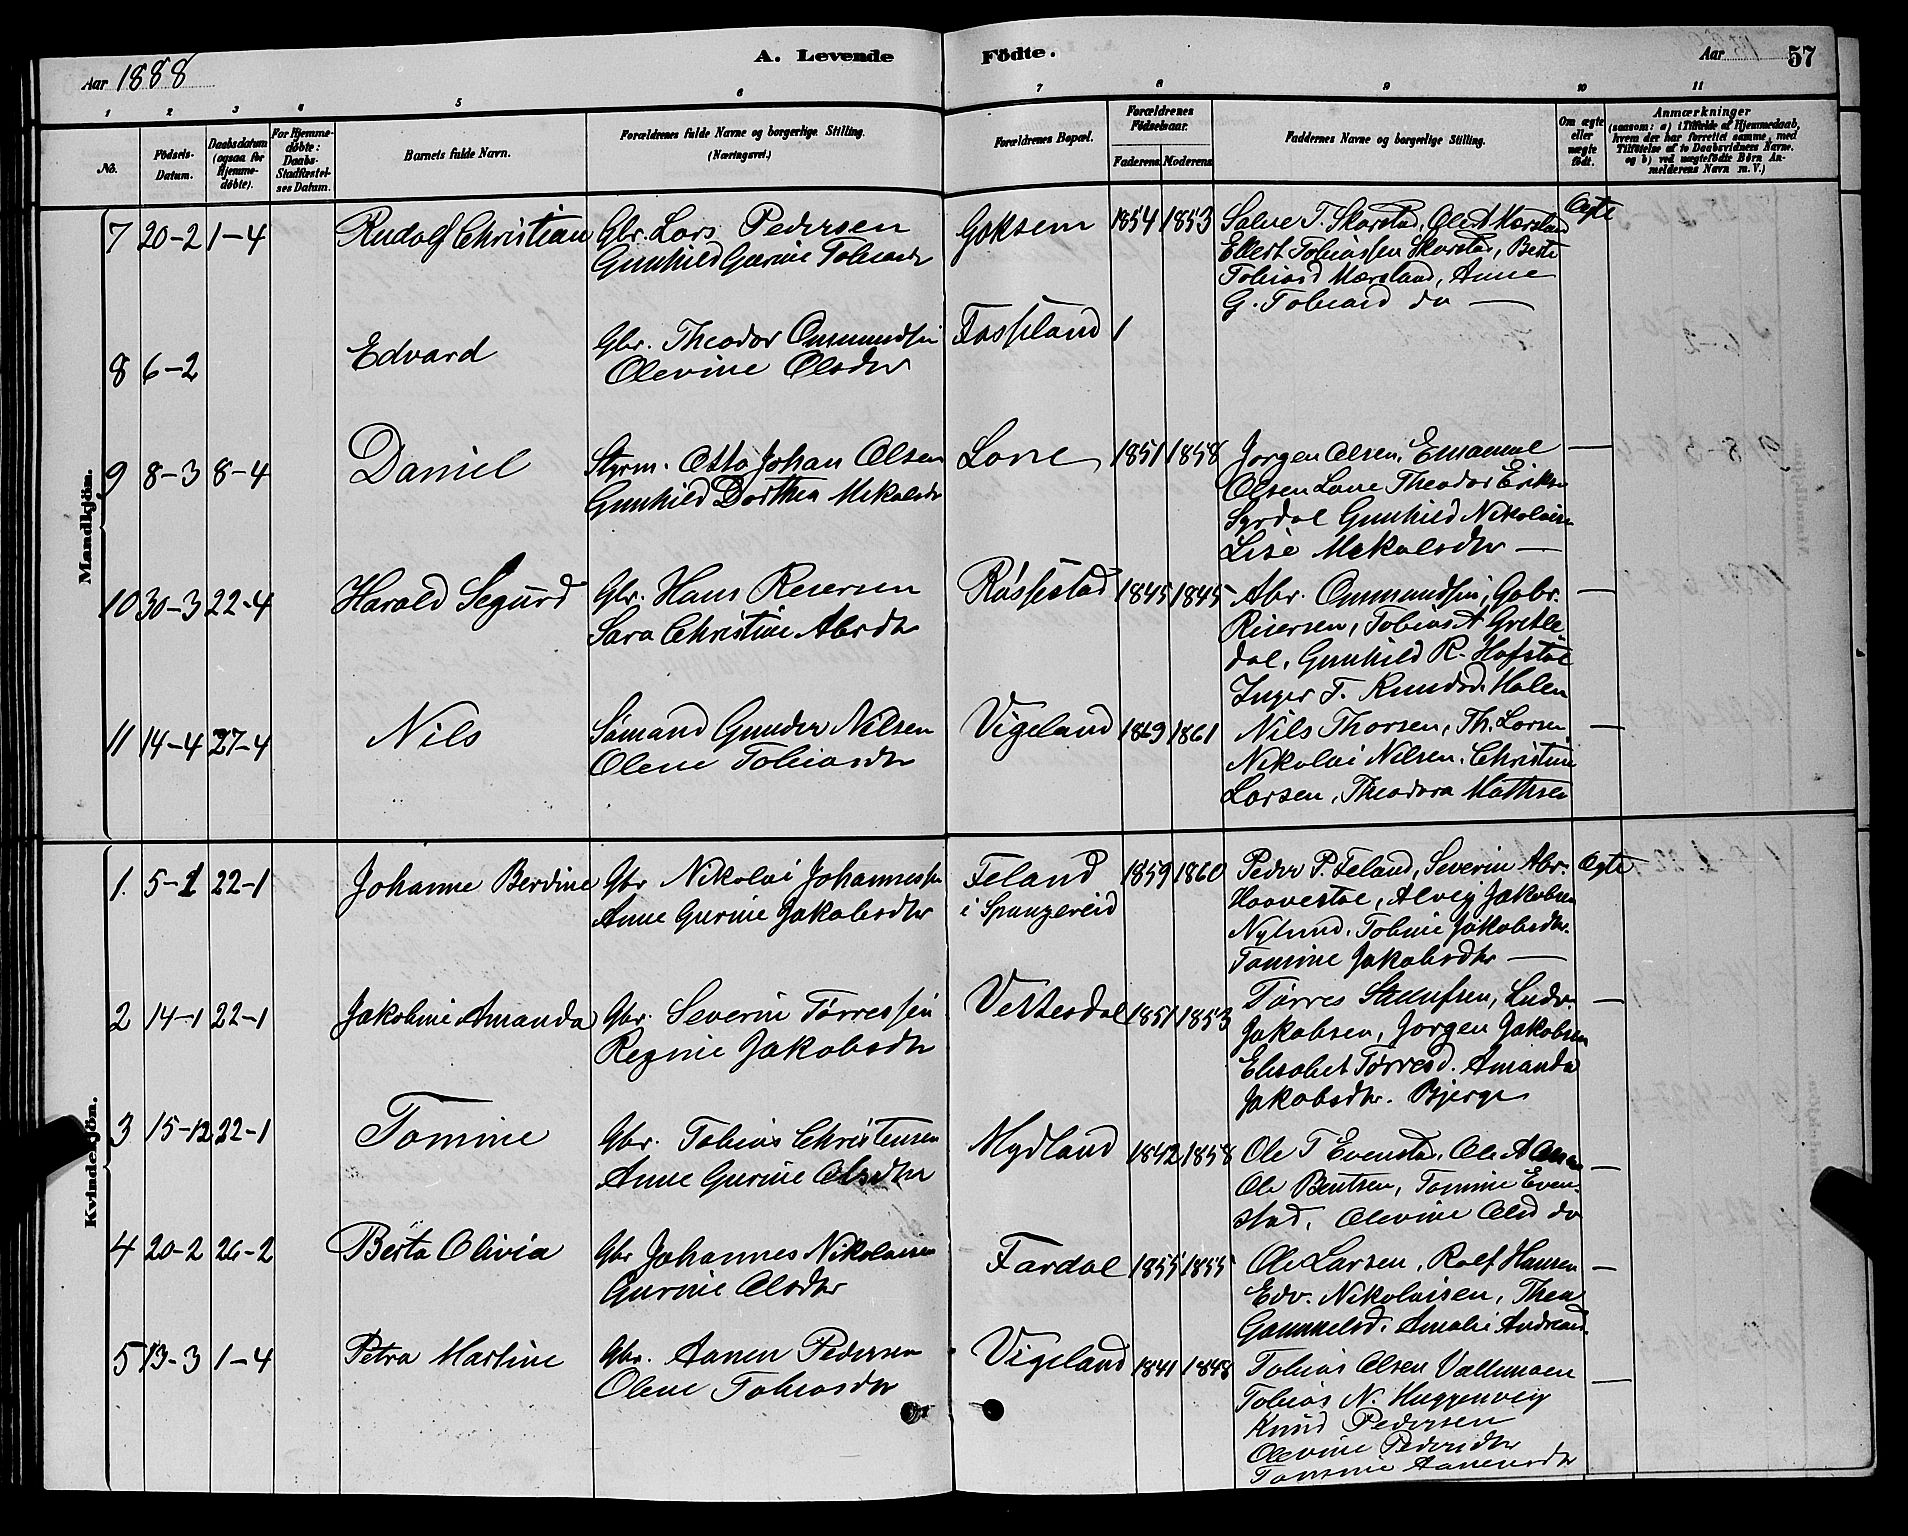 Aar 1888
A. Levende
Födte.
Aar
57
1 2 3 4 5 6 7 8 9 10 11
No.
Födsels-
Datum.
Daabsdatum
(ogsaa for
Hjemme-
døbte).
For Hjemme-
døbte:
Daabs-
Stadfæstel-
ses Datum.
Barnets fulde Navn.
Forældrenes fulde Navne og borgerlige Stilling.
(Næringsvei.)
Forældrenes Bopæl.
Forældrenes
Födselsaar.
Faderens. Moderens.
Faddernes Navne og borgerlige Stilling.
Om ægte
eller
uægte
födt.
Anmærkninger
(saasom: a) i Tilfælde af Hjemmedaab,
hvem der har forrettet samme, med
Tilföielse af to Daabsvidners Navne.
og b) ved uægtefödte Börn An-
melderens Navn m. V.)
Mandkjön.
7 20-2 1-4 Rudolf Christian Gbr. Lars Pedersen
Gunhild Gurine Tobiasdr
Goksem 1854 1853 Salve T. Skarstad, Ole A Marsland
Ellert Tobiassen Skarstad, Berte
Tobiasd Marsland, Anne
G. Tobiasd do —
Ægte
8 6-2 Edvard Gbr. Theodor Ommundsen
Olevine Olsdtr
Fasseland 1
9 8-3 8-4 Daniel Styrm. Otto Johan Olsen
Gunhild Dorthea Mikalsdr
Lone 1851 1858 Jorgen Olsen, Emanuel
Olsen Lone Theodor Eriksn
Syrdal Gunhild Nikolaisn
Lise Mikalsdtr —
—
10 30-3 22-4 Harald Segurd Gbr. Hans Reiersen
Sara Christine Abrdtr
Røssestad 1845 1845 Abr. Ommundsen, Gabr.
Reiersen, Tobias A Gretle
dal, Gunhild R. Hofstøl
Inger T. Knudsd. Holen
—
11 14-4 27-4 Nils Sømand Gunder Nilsen
Olene Tobiasdtr
Vigeland 1869 1861 Nils Thorsen, Th. Larsen
Nikolai Nilsen. Christine
Larsen, Theodora Mathsen
—
Kvindekjön.
1. 5-1 22-1 Johanne Berdine Gbr Nikolai Johannessen
Anne Gurine Jakobsdtr
Feland
i Spangereid
1859 1860 Peder P. Feland, Severin Abr.
Haavestøl, Alvig Jakobsen
Nylund. Tobine Jakobsdtr.
Tomine Jakobsdtr —
Ægte
2 14-1 22-1 Jakobine Amanda Gbr. Severin Tørressen
Regine Jakobsdtr
Vettesdal 1851 1853 Tørres Stenersen, Ludv.
Jakobsen, Jorgen Jakobsen
Elisabet Tørresd. Amanda
Jakobsdtr. Bjerge
—
3 15-12 22-1 Tomine Gbr. Tobias Christensen
Anne Gurine Olsdtr
Mydland 1842 1858 Ole T Evenstad, Ole A
Ole Bentsen, Tomine Even-
stad, Olevine Olsd do
—
4 20-2 26-2 Berta Olivia Gbr Johannes Nikolaisen
Gurine Olsdtr
Fardal 1855 1855 Ole Larsen, Rolf Hansen
Edv. Nikolaisen, Thea
Gammelsd. Amalie Andreasd.
—
5 13-3 1-4 Petra Martine Gbr. Aanen Pedersen
Olene Tobiasdtr
Vigeland 1841 1848 Tobias Olsen Vallemoen
Tobias N. Huggenvig
Knud Pedersen
Olevine Pedersdtr
Tomine Aanensdtr
—